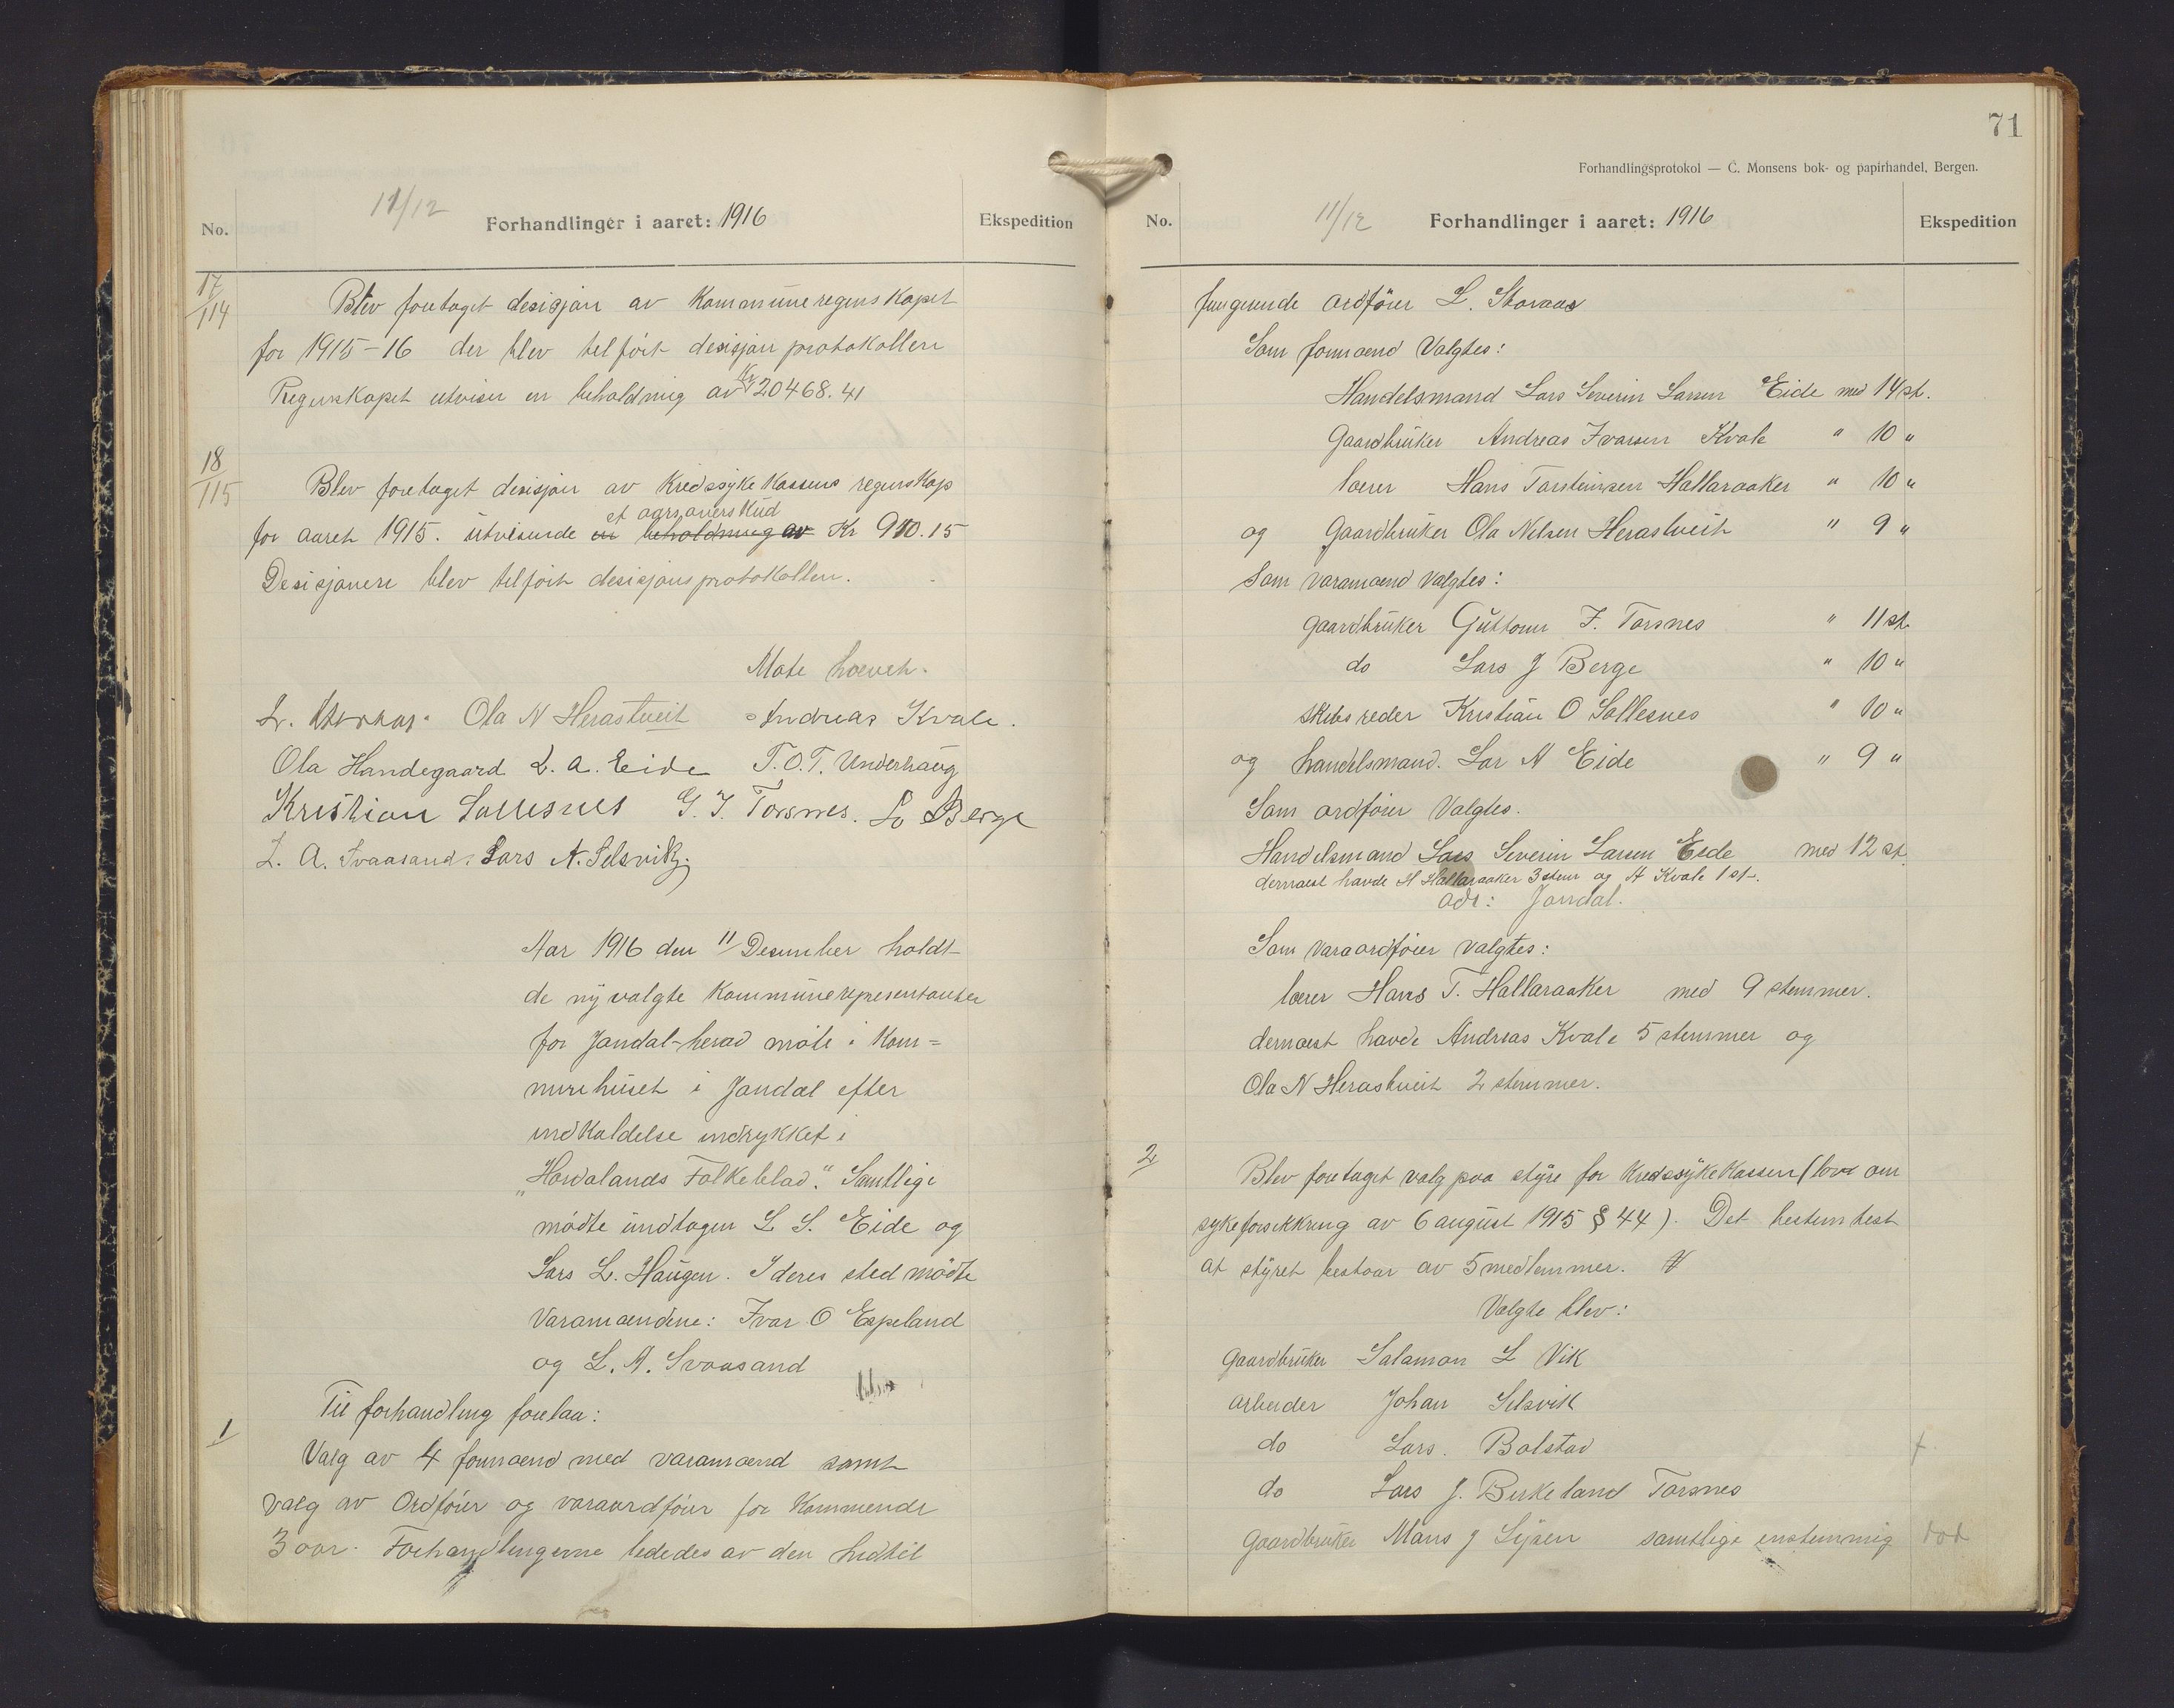 11/12
Forhandlinger i aaret: 1916
No.
Ekspedition
17/114
Blev foretaget desisjon av Kommuneregnskapet
for 1915-16 der blev tilført desisjonsprotokollen
Regnskapet utviser en beholdning av Kr 20468.41
18/115
Blev foretaget desisjon av Kredssykekassens regnskap
et aarsoverskud
for aaret 1915. utvisende en beholdning av Kr 910.15
Desisjonen blev tilført desisjonsprotokollen.
Møte hævet.
L. Storaas. Ola N Herastveit Andreas Kvale.
Ola Handegaard L. A. Eide T. O. T. Underhaug
Kristian Sollesnes G. I. Torsnes. L J Berge
L. A. Svaasand. Lars N. Selsvik
Aar 1916 den 11/ Desember holdt
de nyvalgte Kommunerepresentanter
for Jondal-herad møte i Kom=
munehuset i Jondal efter
indkaldelse indrykket i
"Hordalands Folkeblad." Samtlige
mødte undtagen L S. Eide og
Lars L. Haugen. I deres sted mødte
Varamændene: Ivar O Espeland
og L. A. Svaasand
Til forhandling forelaa:
1
Valg av 4 formænd med varamænd samt
valg av Ordfører og varaordfører for Kommende
3 aar. Forhandlingerne lededes av den hidtil
71
Forhandlingsprotokol — C. Monsens bok- og papirhandel, Bergen.
11/12
No.
Forhandlinger i aaret: 1916
Ekspedition
fungerende ordfører L. Storaas
Som formænd Valgtes:
Handelsmand Lars Severin Larsen Eide med 14 st.
Gaardbruker Andreas Ivarsen Kvale " 10 "
lærer Hans Torsteinsen Hallaraaker " 10 "
og Gaardbruker Ola Nelsen Herastveit " 9 "
Som varamænd Valgtes:
gaardbruker Guttorm I. Torsnes " 11 st.
do Lars J Berge " 10 "
skibsreder Kristian O Sollesnes " 10 "
og handelsmand. Lar N Eide " 9 "
Som ordfører Valgtes.
Handelsmand Lars Severin Larsen Eide med 12 st.
dernæst havde H Hallaraaker 3 stem og A Kvale 1 st.
adr: Jondal.
Som varaordfører valgtes:
lærer Hans T. Hallaraaker med 9 stemmer.
dernæst havde Andreas Kvale 5 stemmer og
Ola N Herastveit 2 stemmer.
2
Blev foretaget valg paa styre for Kredssykekassen (lov om
sykeforsikkring av 6 august 1915 § 44). Det bestemtest
at styret bestaar av 5 medlemmer.
Valgte blev:
Gaardbruker Salamon L Vik
arbeider Johan Selsvik
do Lars. Bolstad
do Lars J. Birkeland Torsnes
Gaardbruker Mans J Sijaen samtlige enstemmig død